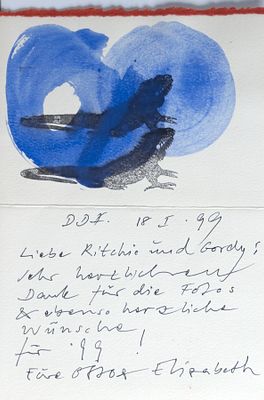 DDF. 18 I. 99
Liebe Ritchie und Gordy!
Sehr herzlichen
Dank für die Fotos
& ebenso herzliche
Wünsche
für '99!
Eure Otto & Elisabeth